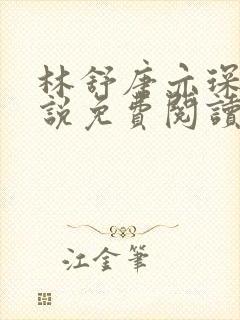 林舒唐亦琛
說免費閱讀
江金筆